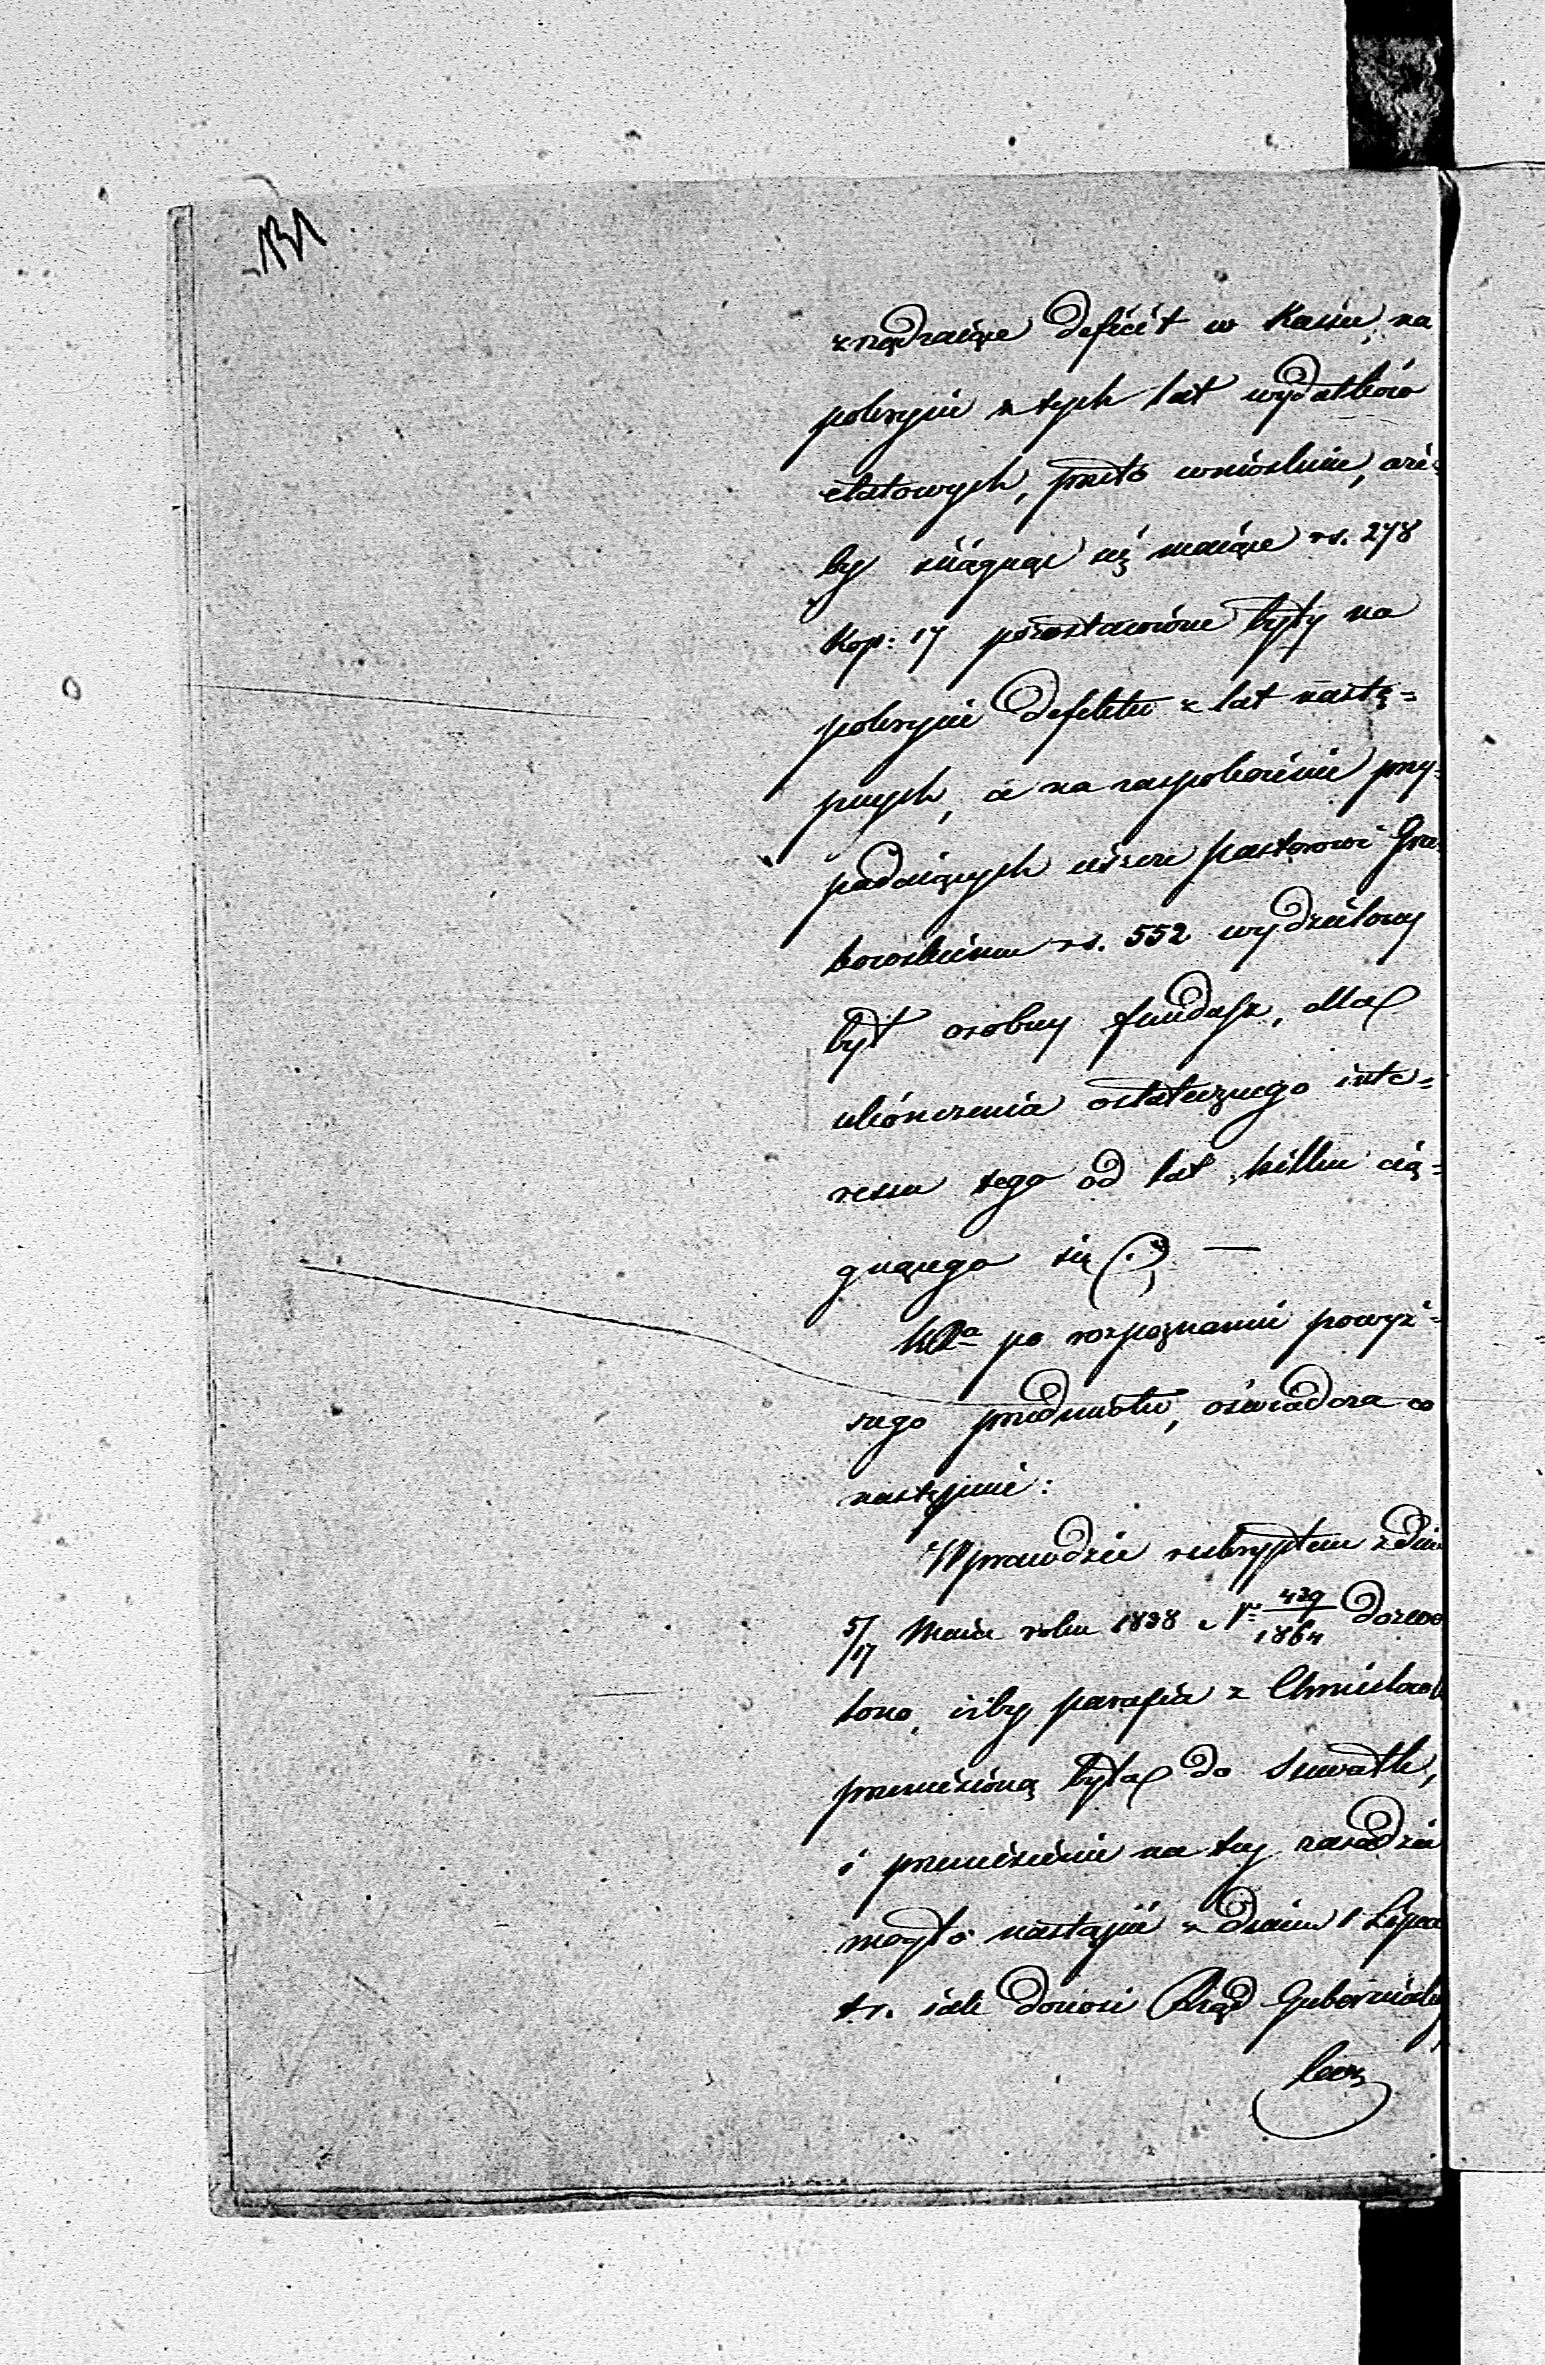 131
zrządzaiące deficit w Kassie, na
pokrycie z tych lat wydatków
etatowych, przeto wniosków, aże-
by ściągnąć się maiące rs. 278
Kop: 17 pozostawione były na
pokrycie defektu z lat nastę=
pnych, a na zaspokoienie przy-
padaiących ieszcze pastorowi Gra-
bowskiemu rs. 552 wydzielony
był osobny fundusz, dla
ukończenia ostatecznego inte=
ressu tego od lat kilku cią=
gnącego się (.) —
po rozpoznaniu powyż-
szego przedmiotu, oświadcza co
następuie:
Wprawdzie reskryptem z dnia
5/17 Maia roku 1838 Nr 439/1864 dozwo
lono, iżby parafia z Chmielów
przeniesioną była do Suwałk,
i przeniesienie na tey zasadzie
mogło nastąpić z dniem 1 Lipca
t. r. iak donosi Rząd Gubernialny
lecz